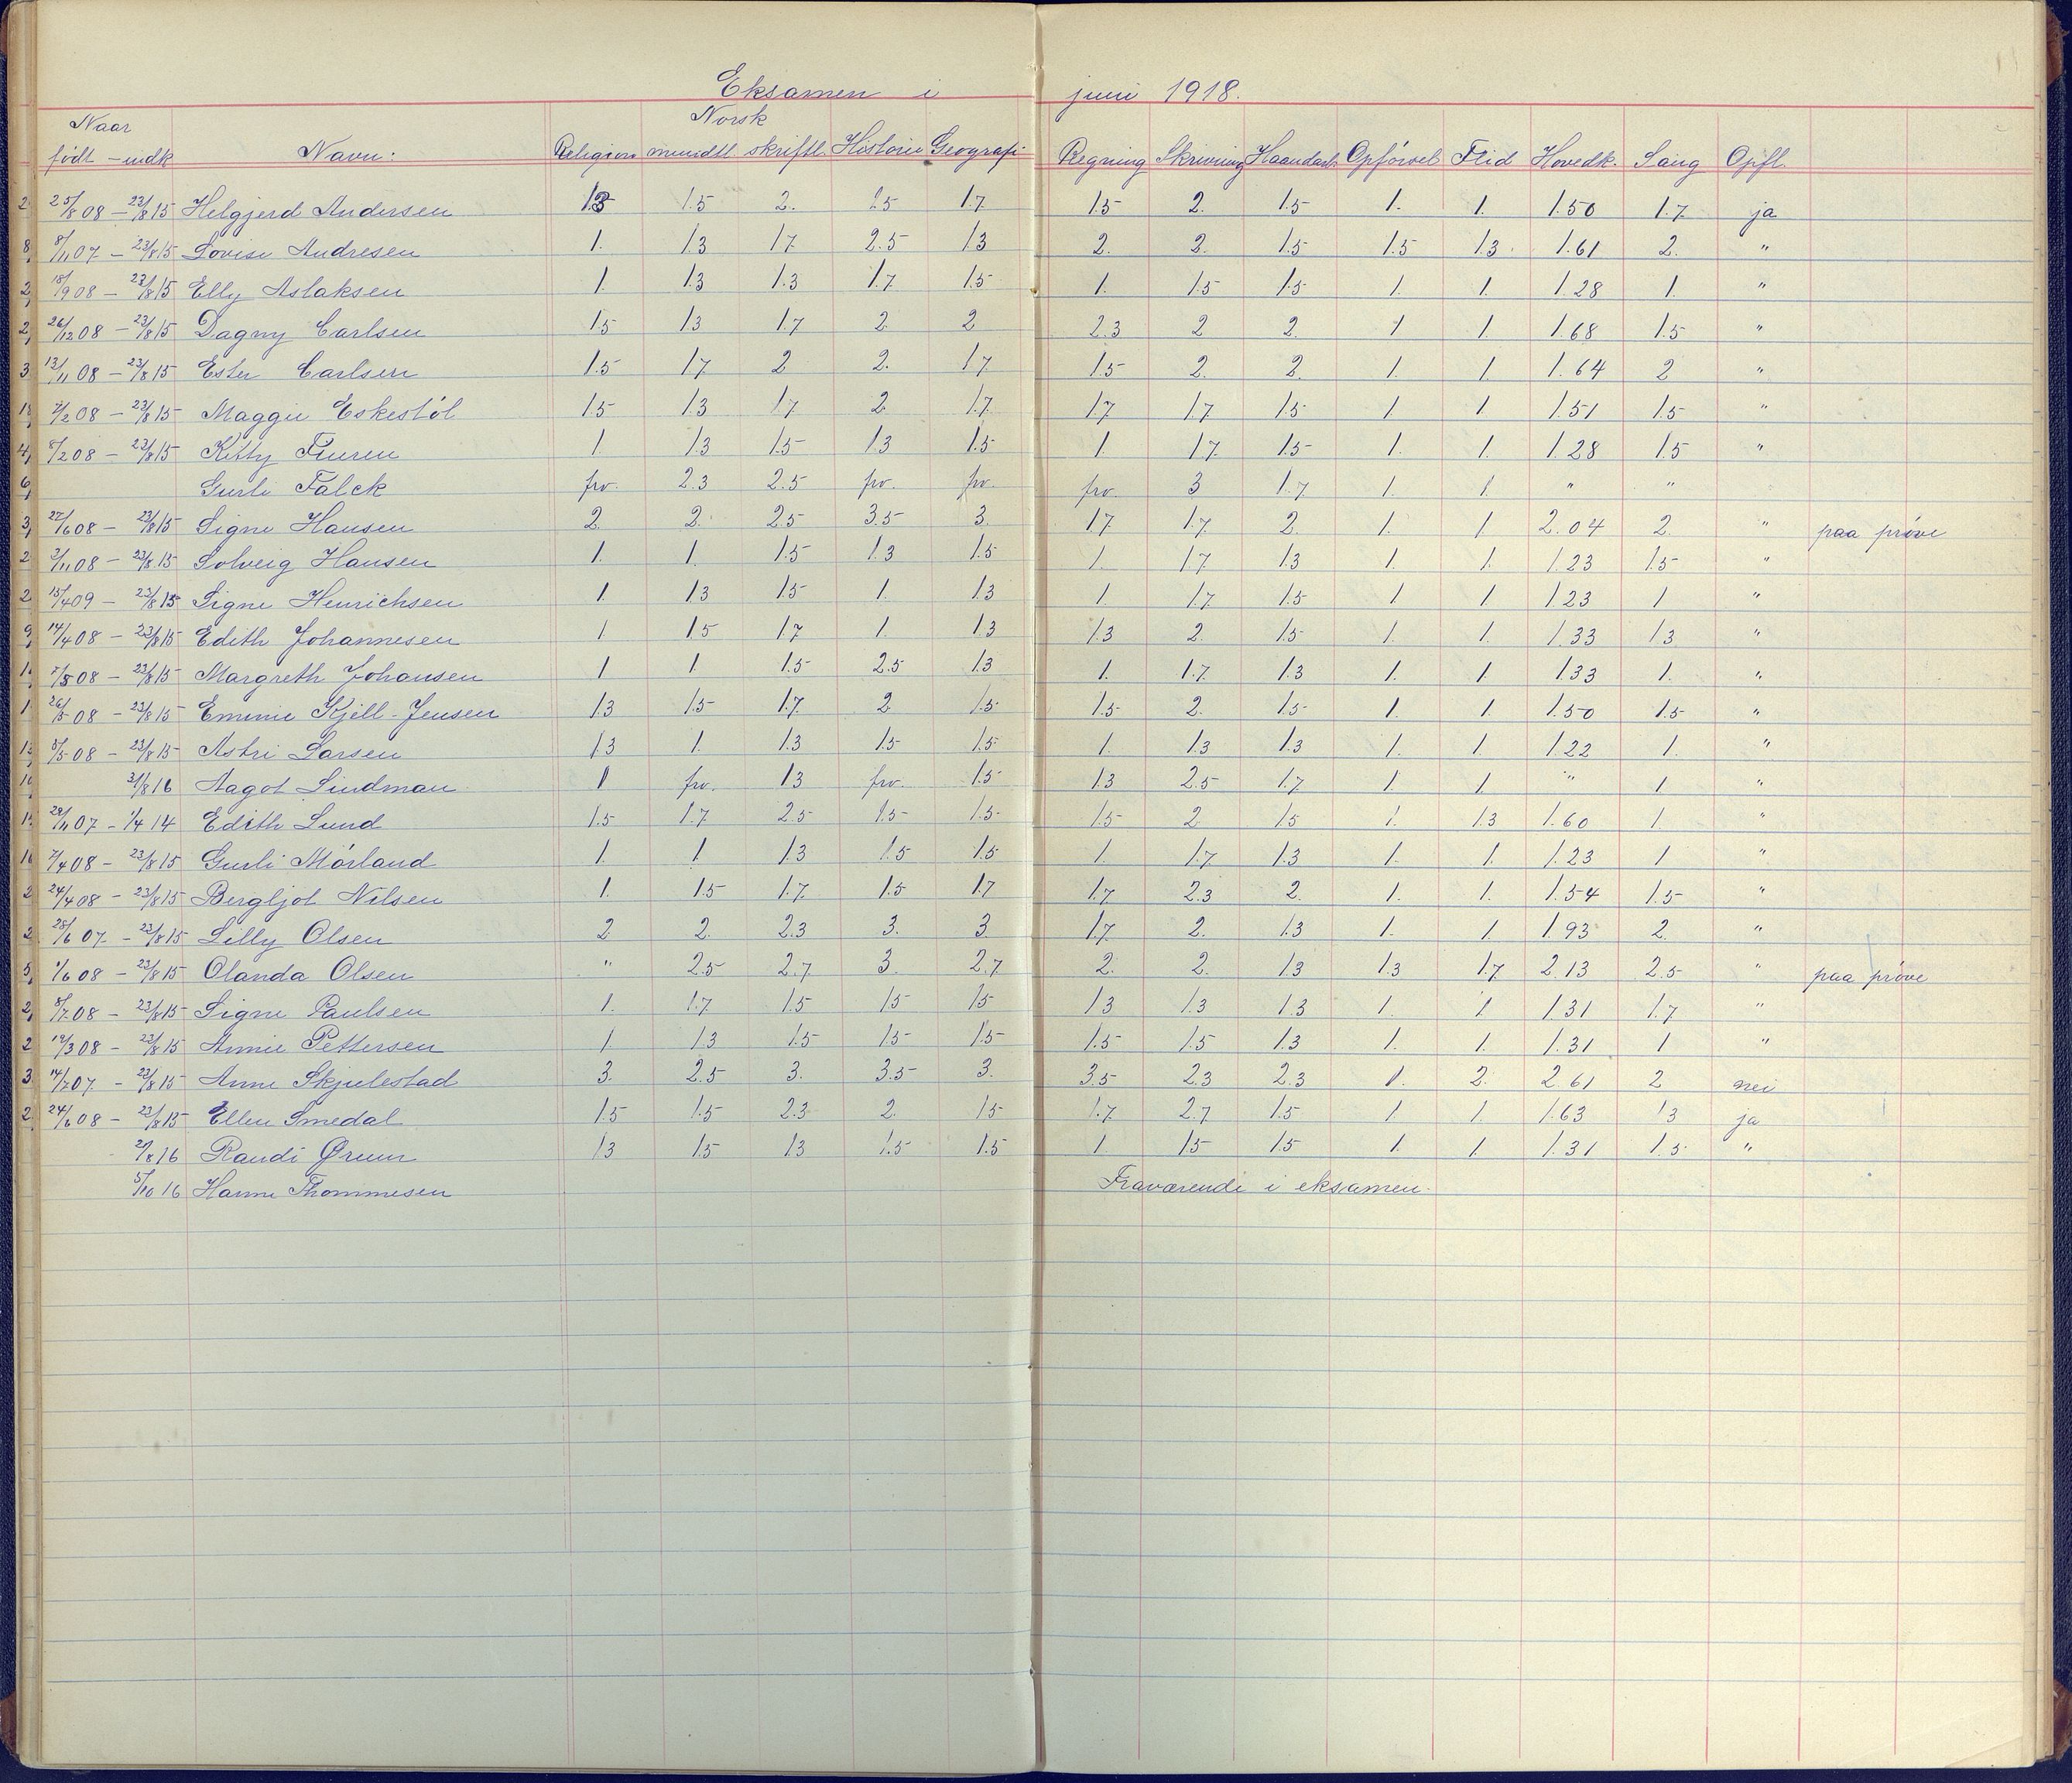 Eksamen i juni 1918.
Naar Norsk
født - indk Navn: Religion mundtl. skriftl. Historie Geografi Regning Skrivning Haandarb. Opførsel Flid Hovedk. Sang Opfl.
25/8 08 - 23/8 15 Helgjerd Andersen 1.3 1.5 2. 2.5 1.7 1.5 2. 1.5 1. 1. 1.50 1.7 ja
8/11 07 - 23/8 15 Lovise Andresen 1. 1.3 1.7 2.5 1.3 2. 2. 1.5 1.5 1.3 1.61 2. "
18/9 08 - 23/8 15 Elly Aslaksen 1. 1.3 1.3 1.7 1.5 1. 1.5 1.5 1. 1. 1.28 1. "
26/12 08 - 23/8 15 Dagny Carlsen 1.5 1.3 1.7 2 2 2.3 2 2. 1 1. 1.68 1.5 "
13/11 08 - 23/8 15 Ester Carlsen 1.5 1.7 2 2. 1.7 1.5 2. 2. 1 1. 1.64 2 "
2/2 08 - 23/8 15 Maggie Eskestøl 1.5 1.3 1.7 2 1.7 1.7 1.7 1.5 1 1 1.51 1.5 "
8/2 08 - 23/8 15 Kitty Fiuren 1 1.3 1.5 1.3 1.5 1. 1.7 1.5 1. 1. 1.28 1.5 "
Gurli Falck frv. 2.3 2.5 frv. frv. frv. 3 1.7 1. 1. " "
27/6 08 - 23/8 15 Signe Hansen 2. 2. 2.5 3.5 3. 1.7 1.7 2. 1. 1 2.04 2. " paa prøve
2/11 08 - 23/8 15 Solveig Hansen 1. 1. 1.5 1.3 1.5 1. 1.7 1.3 1. 1. 1.23 1.5 "
15/4 09 - 23/8 15 Signe Henrichsen 1 1.3 1.5 1. 1.3 1. 1.7 1.5 1 1 1.23 1 "
14/4 08 - 23/8 15 Edith Johannesen 1 1.5 1.7 1. 1.3 1.3 2. 1.5 1. 1. 1.33 1.3 "
7/5 08 - 23/8 15 Margreth Johansen 1 1 1.5 2.5 1.3 1. 1.7 1.3 1. 1 1.33 1. "
26/5 08 - 23/8 15 Emmie Kjell-Jensen 1.3 1.5 1.7 2 1.5 1.5 2. 1.5 1. 1. 1.50 1.5 "
5/5 08 - 23/8 15 Astri Larsen 1.3 1. 1.3 1.5 1.5 1. 1.3 1.3 1. 1. 1.22 1. "
31/8 16 Aagot Lindman 1 frv. 1.3 frv. 1.5 1.3 2.5 1.7 1. 1. " 1 "
28/11 07 - 1/4 14 Edith Lund 1.5 1.7 2.5 1.5 1.5 1.5 2 1.5 1. 1.3 1.60 1. "
7/4 08 - 23/8 15 Gurli Mørland 1. 1. 1.3 1.5 1.5 1. 1.7 1.3 1. 1. 1.23 1 "
24/4 08 - 23/8 15 Bergljot Nilsen 1. 1.5 1.7 1.5 1.7 1.7 2.3 2. 1. 1. 1.54 1.5 "
28/6 07 - 23/8 15 Lilly Olsen 2 2. 2.3 3. 3 1.7 2. 1.3 1. 1. 1.93 2. "
1/6 08 - 23/8 15 Olanda Olsen " 2.5 2.7 3. 2.7 2. 2. 1.3 1.3 1.7 2.13 2.5 " paa prøve
8/7 08 - 23/8 15 Signe Paulsen 1. 1.7 1.5 1.5 1.5 1.3 1.3 1.3 1. 1 1.31 1.7 "
19/3 08 - 23/8 15 Annie Pettersen 1 1.3 1.5 1.5 1.5 1.5 1.5 1.3 1. 1. 1.31 1 "
14/7 07 - 23/8 15 Anne Skjulestad 3. 2.5 3. 3.5 3. 3.5 2.3 2.3 1. 2. 2.61 2 nei
24/6 08 - 23/8 15 Ellen Smedal 1.5 1.5 2.3 2. 1.5 1.7 2.7 1.5 1 1. 1.63 1.3 ja
21/8 16 Randi Ørum 1.3 1.5 1.3 1.5 1.5 1 1.5 1.5 1. 1. 1.31 1.5 "
5/10 16 Hanne Thommesen Fraværende i eksamen.